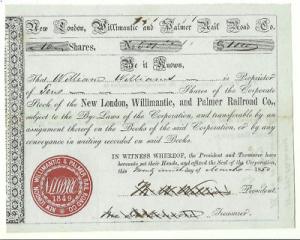 New London, Willimantic and Palmer Rail Road Co.
Shares.
Be it Known,
That William Williams is Proprietor
of Ten Shares of the Corporate
Stock of the New London, Willimantic, and Palmer Railroad Co.,
subject to the Bye-Laws of the Corporation, and transferable by an
assignment thereof on the Books of the said Corporation, or by any
conveyance in writing recorded on said Books.
IN WITNESS WHEREOF, the President and Treasurer have
hereunto set their Hands, and affixed the Seal of the Corporation
this day of 1850
President.
Treasurer.
NEW LONDON WILLIMANTIC & PALMER RAIL ROAD CO.
1849